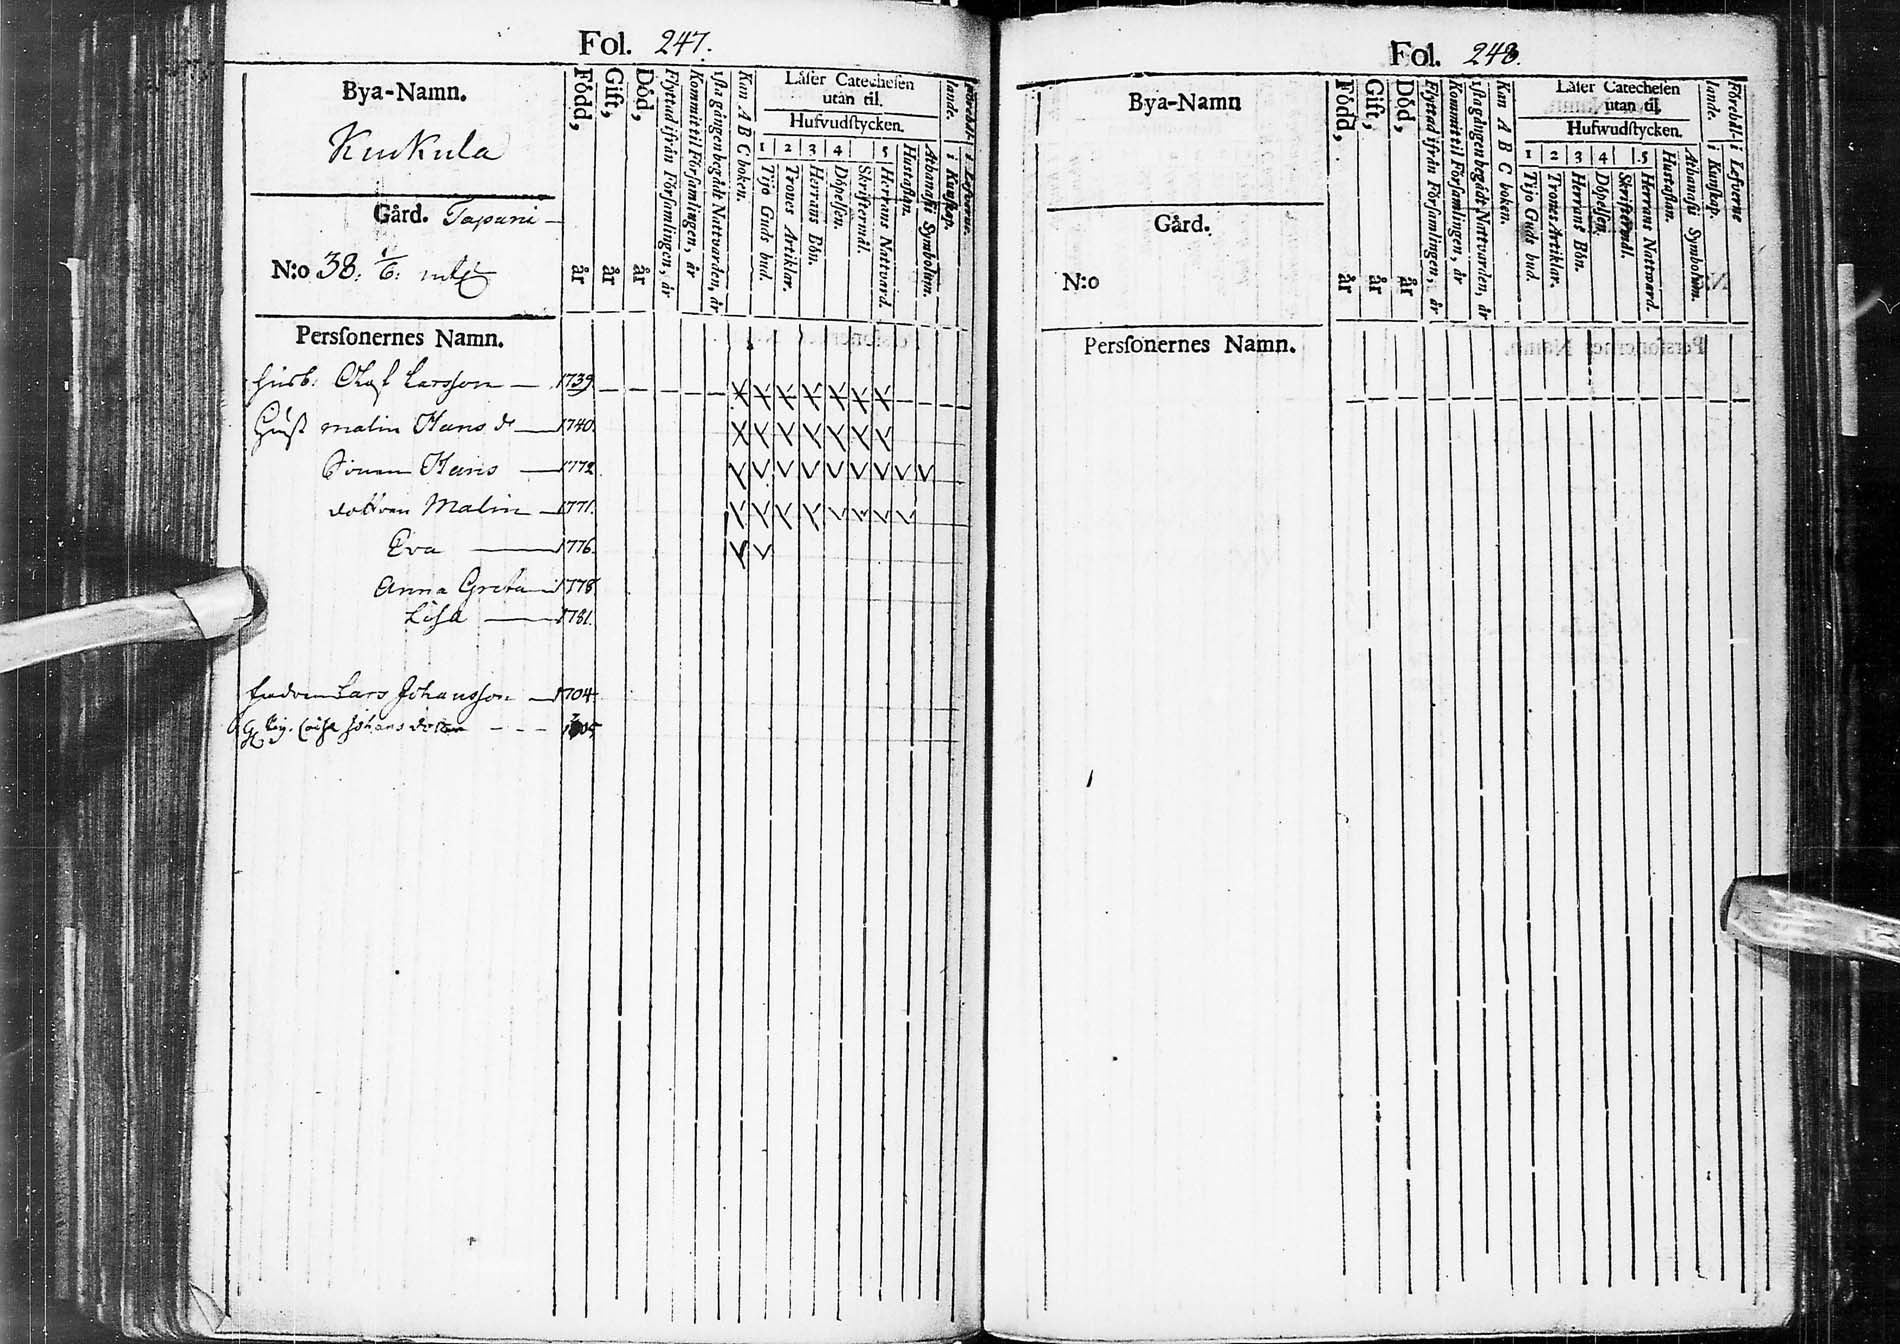 Fol. 247.
Bya-Namn.
Kuukula
Gård. Tapani
N:o 38. 1/6. mtl
Född, år
Gift, år
Död, år
Flyttad ifrån Församlingen, år
Kommit til Församlingen, år
1sta gången begådt Nattvarden, år
Kan A B C boken.
Låſer Catecheſen
utan til.
Hufvudſtycken.
1 2 3 4 5
Tijo Guds bud.
Trones Artiklar.
Herrans Bön.
Döpelſen.
Skriftermål.
Herrans Nattvard.
Hustaflan.
Athanaſii Symbolum.
Förehållande.
i Kunſkap.
i Lefverne.
Perſonernes Namn.
Husb: Olof Larsson 1739.
Hust malin Hans dr 1740.
Sonen Hans 1772
dottren Malin 1771.
Eva 1776.
Anna Greta 1778
Lisa 1781.
fadren Lars Johansson 1704
Johans dotter
Fol. 248.
Bya-Namn
Gård.
N:o
Född, år
Gift, år
Död, år
Flyttad ifrån Församlingen, år
Kommit til Församlingen, år
1sta gången begådt Nattvarden, år
Kan A B C boken.
Låſer Catecheſen
utan til.
Hufwudſtycken.
1 2 3 4 5
Tijo Guds bud.
Trones Artiklar.
Herrans Bön.
Döpelſen.
Skriftermål.
Herrans Nattward.
Hustaflan.
Athanaſii Symbolum.
Förehållande.
i Kunſkap.
i Lefverne
Perſonernes Namn.